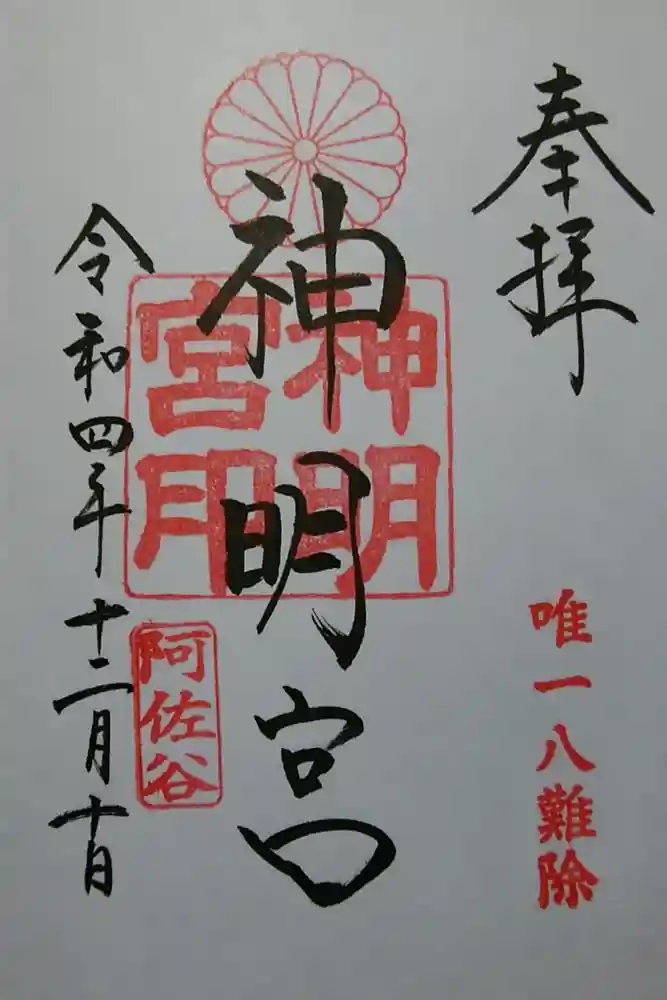 奉拝
唯一八難除
神明宮
神明
宮印
阿佐谷
令和四年十二月十日